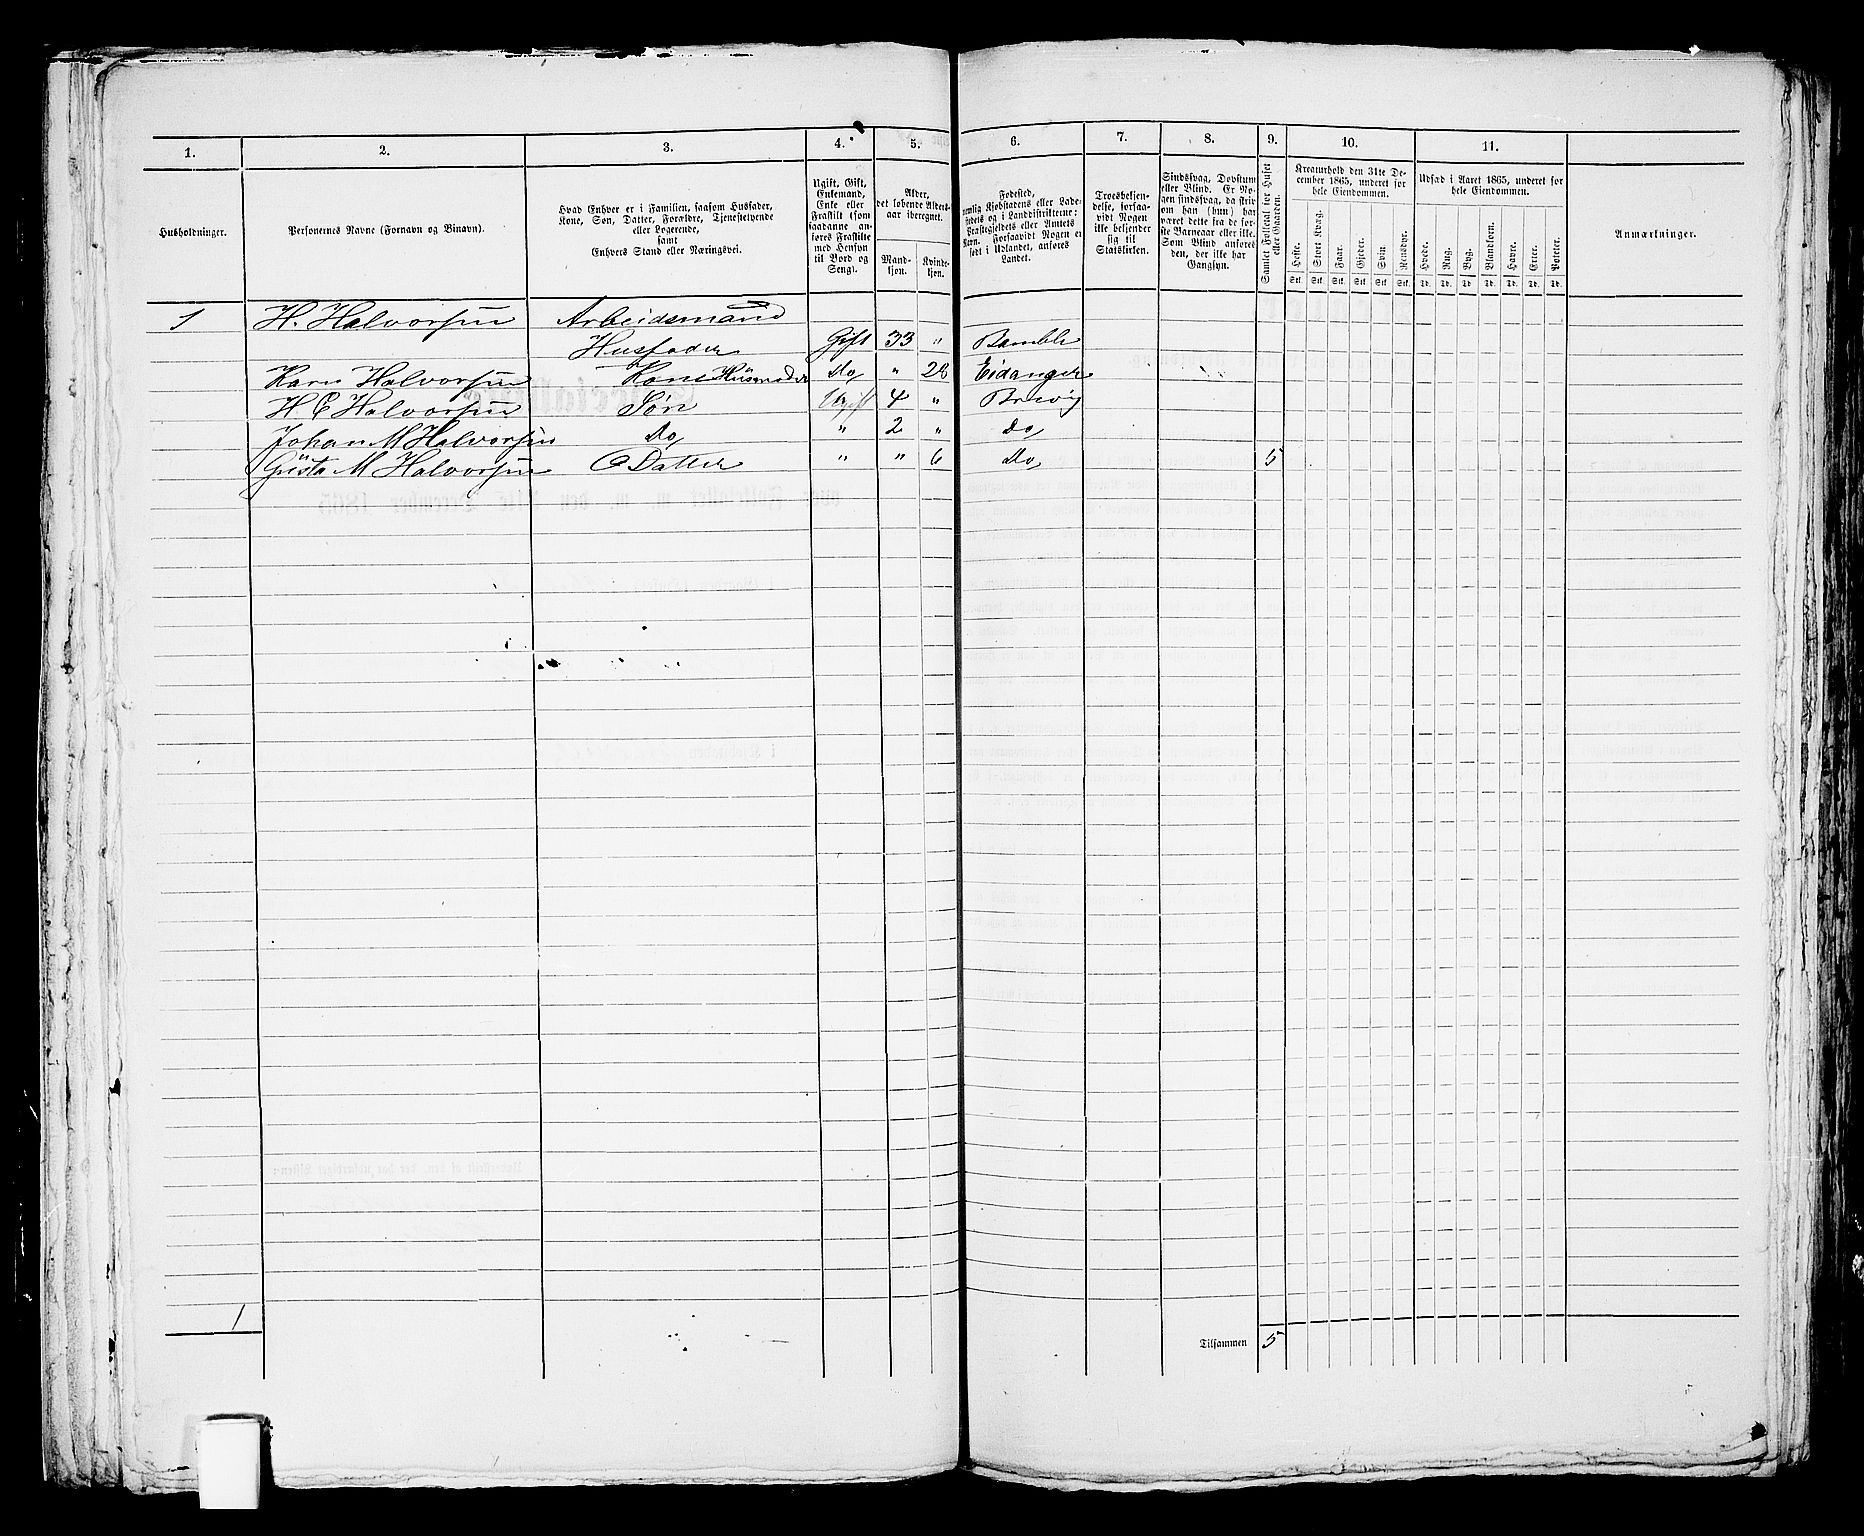 1. 2. 3. 4. 5. 6. 7. 8. 9. 10. 11.
Husholdninger.
Personernes Navne (Fornavn og Binavn).
Hvad Enhver er i Familien, saasom Husfader,
Kone, Søn, Datter, Forældre, Tjenestetyende
eller Logerende,
samt
Enhvers Stand eller Næringsvei.
Ugift, Gift,
Enkemand,
Enke eller
Fraskilt (som
saadanne an-
føres Fraskilte
med Hensyn
til Bord og
Seng).
Alder,
det løbende Alders-
aar iberegnet.
Mand-
kjøn.
Kvinde-
kjøn.
Fødested,
nemlig Kjøbstadens eller Lade-
stedets og i Landdistrikterne:
Præstegjeldets eller Amtets
Navn. Forsaavidt Nogen er
født i Udlandet, anføres
Landet.
Troesbekjen-
delse, forsaa-
vidt Nogen
ikke bekjender
sig til
Statskirken.
Sindssvag, Døvstum
eller Blind. Er No-
gen sindssvag, da skri-
ves om han (hun) har
været dette fra de før-
ste Barneaar eller ikke.
Som Blind anføres
den, der ikke har
Gangsyn.
Samlet Folketal for Huset
eller Gaarden.
Kreaturhold den 31te De-
cember 1865, underet for
hele Eiendommen.
Heste. Stort Kvæg. Faar. Gjeder. Svin. Rensdyr.
Stk. Stk. Stk. Stk. Stk. Stk.
Udsæd i Aaret 1865, underet for
hele Eiendommen.
Hvede. Rug. Byg. Blandkorn. Havre. Erter. Poteter.
Td. Td. Td. Td. Td. Td. Td.
Anmærkninger.
1 H. Halvorsen Arbeidsmand
Husfader Gift 33 " Bamble
Karn Halvorsen Kone Husmoder Do " 28 Eidanger
H. E Halvorsen Søn Ugift 4 " Brevig
Johan M Halvorsen Do " 2 " Do
Gusta M Halvorsen Datter " " 6 Do 5
1 Tilsammen 5